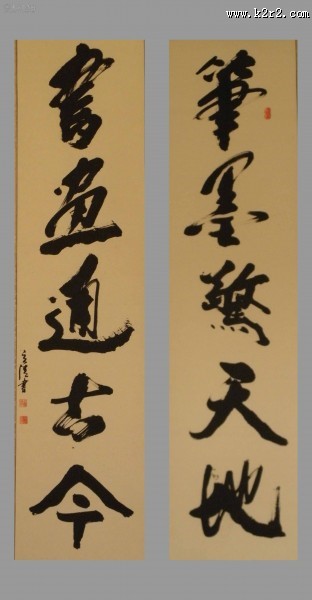 www.k2r2.com
筆墨驚天地
書畫通古今